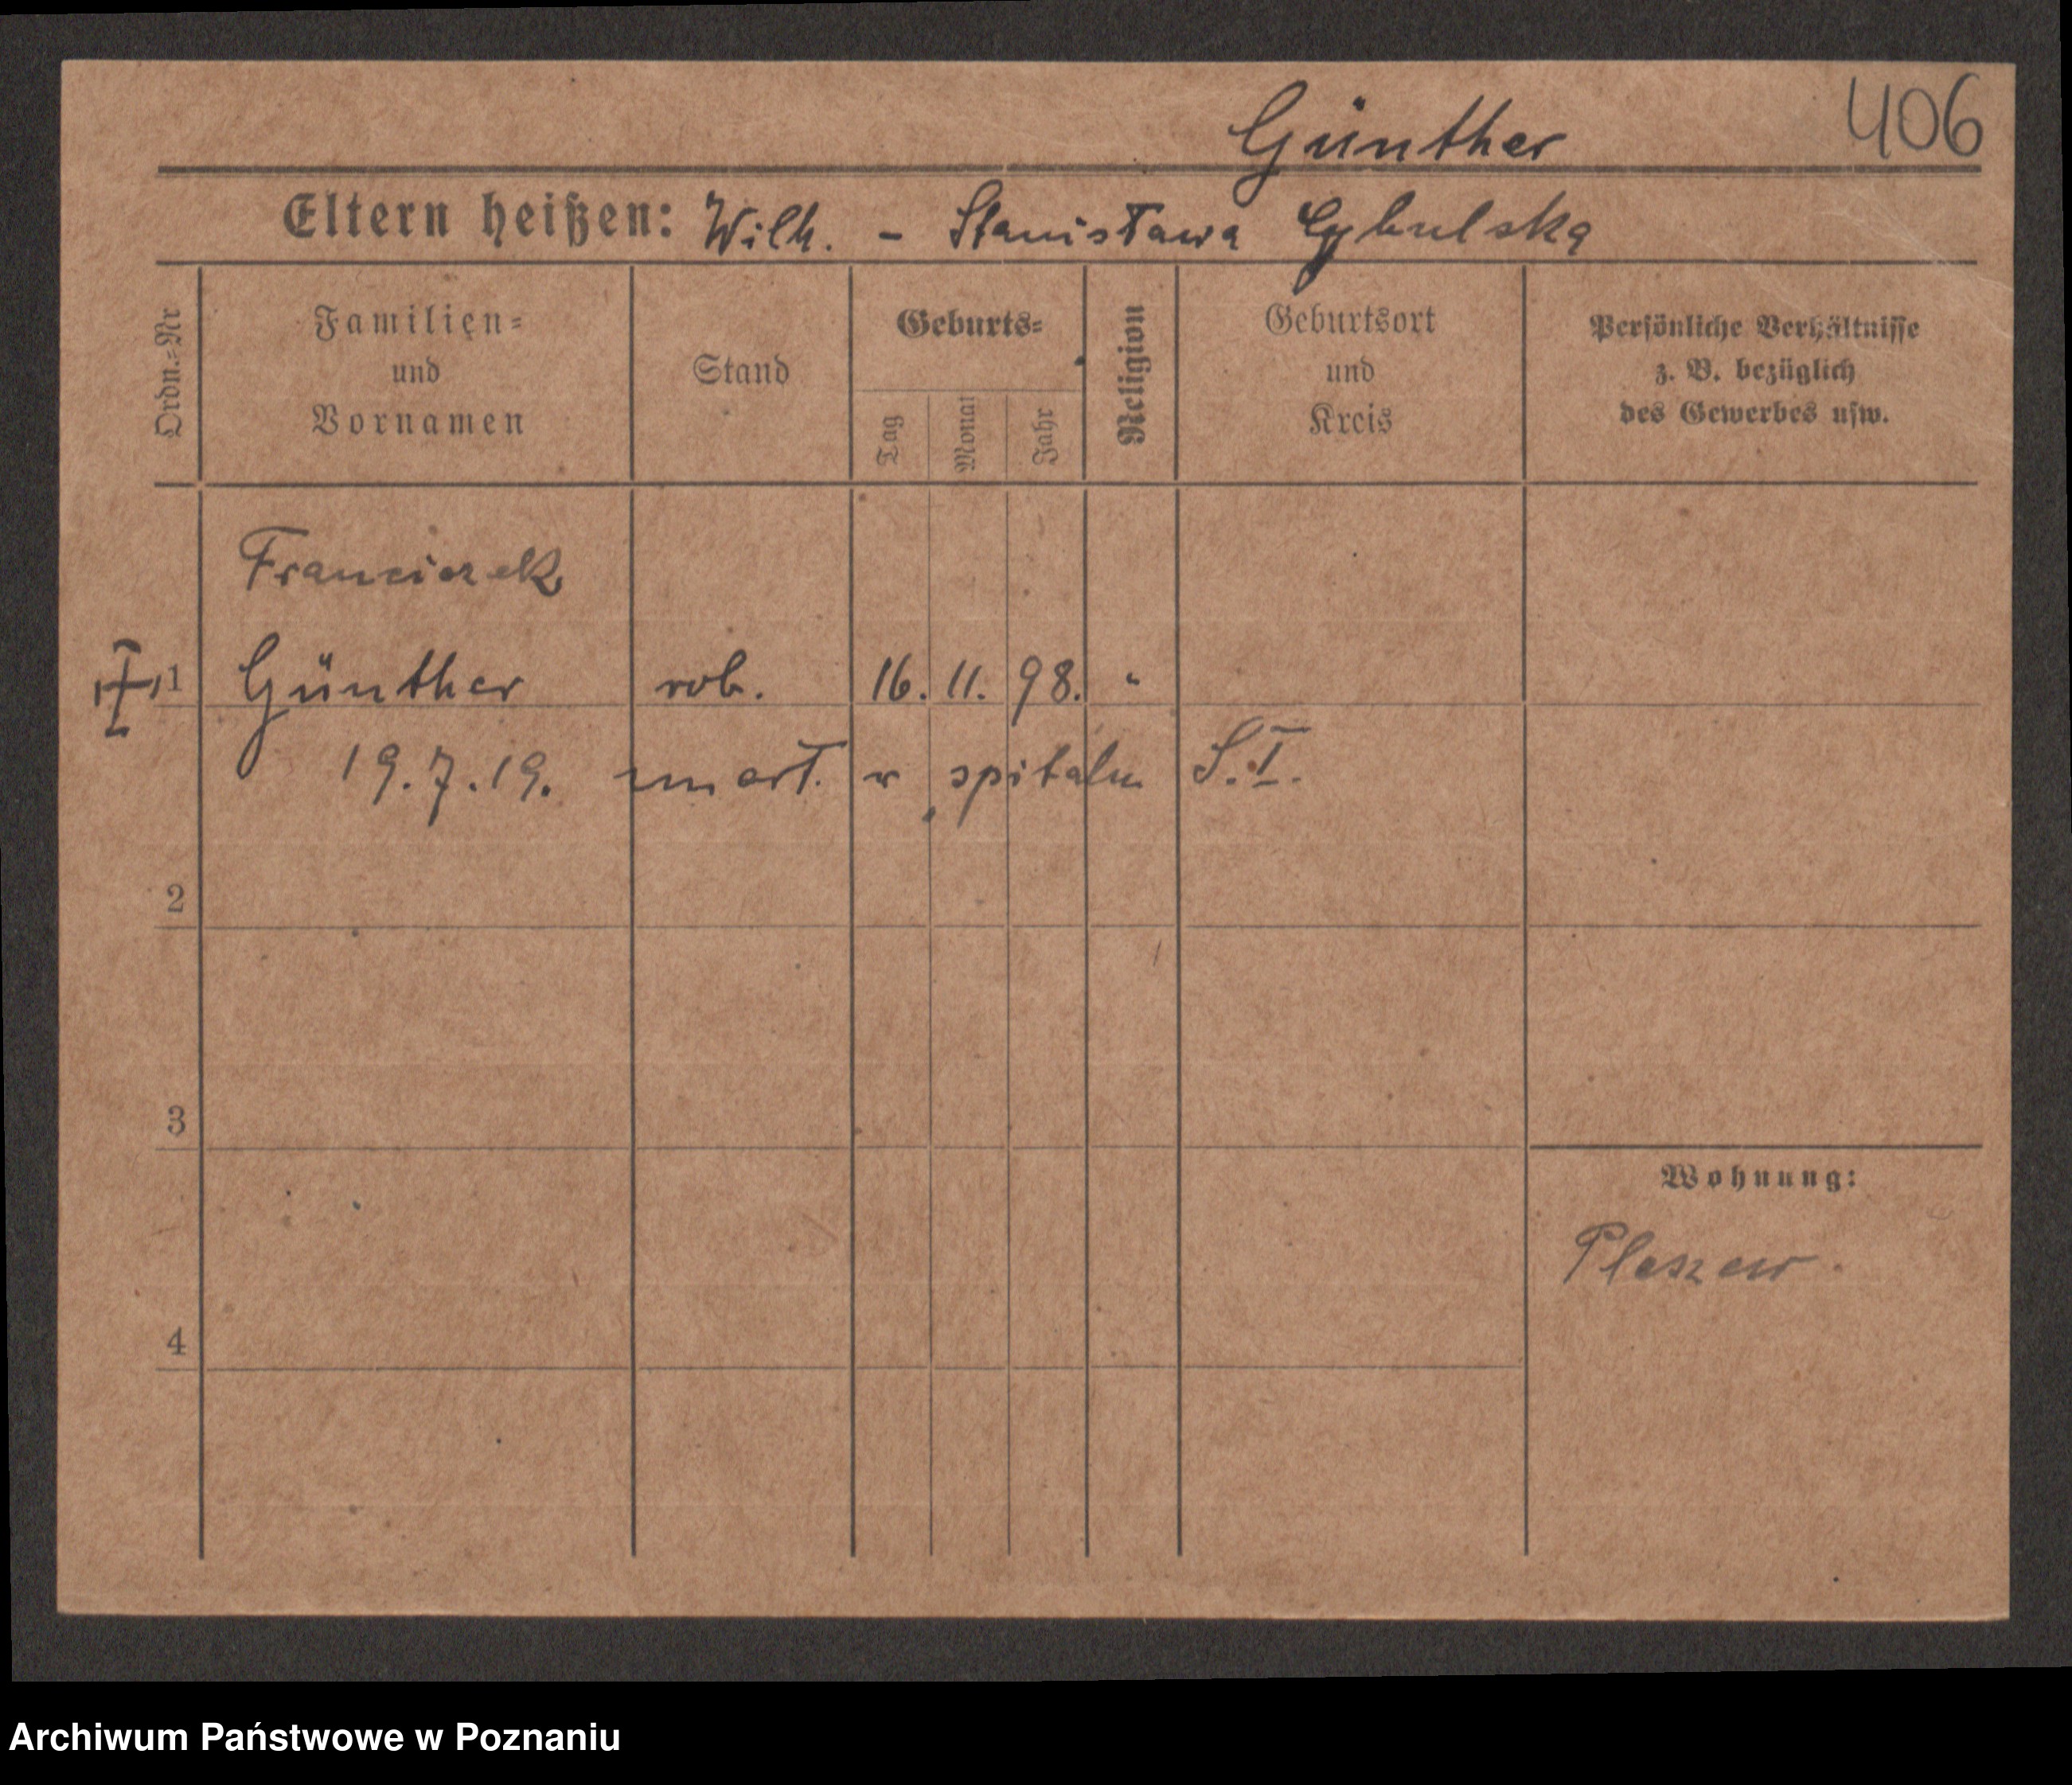 Günther 406
Eltern heißen: Wilh. - Stanisława Cybulska
Ordn.-Nr
Familien-
und
Vornamen
Stand
Geburts-
Tag
Monat
Jahr
Religion
Geburtsort
und
Kreis
Persönliche Verhältnisse
z. B. bezüglich
des Gewerbes usw.
Franciszek
1 Günther rob. 16. 11. 98. "
19.7.19. zmarł. w spitalu S.I.
2
3
Wohnung:
Pleszew
4
Archiwum Państwowe w Poznaniu